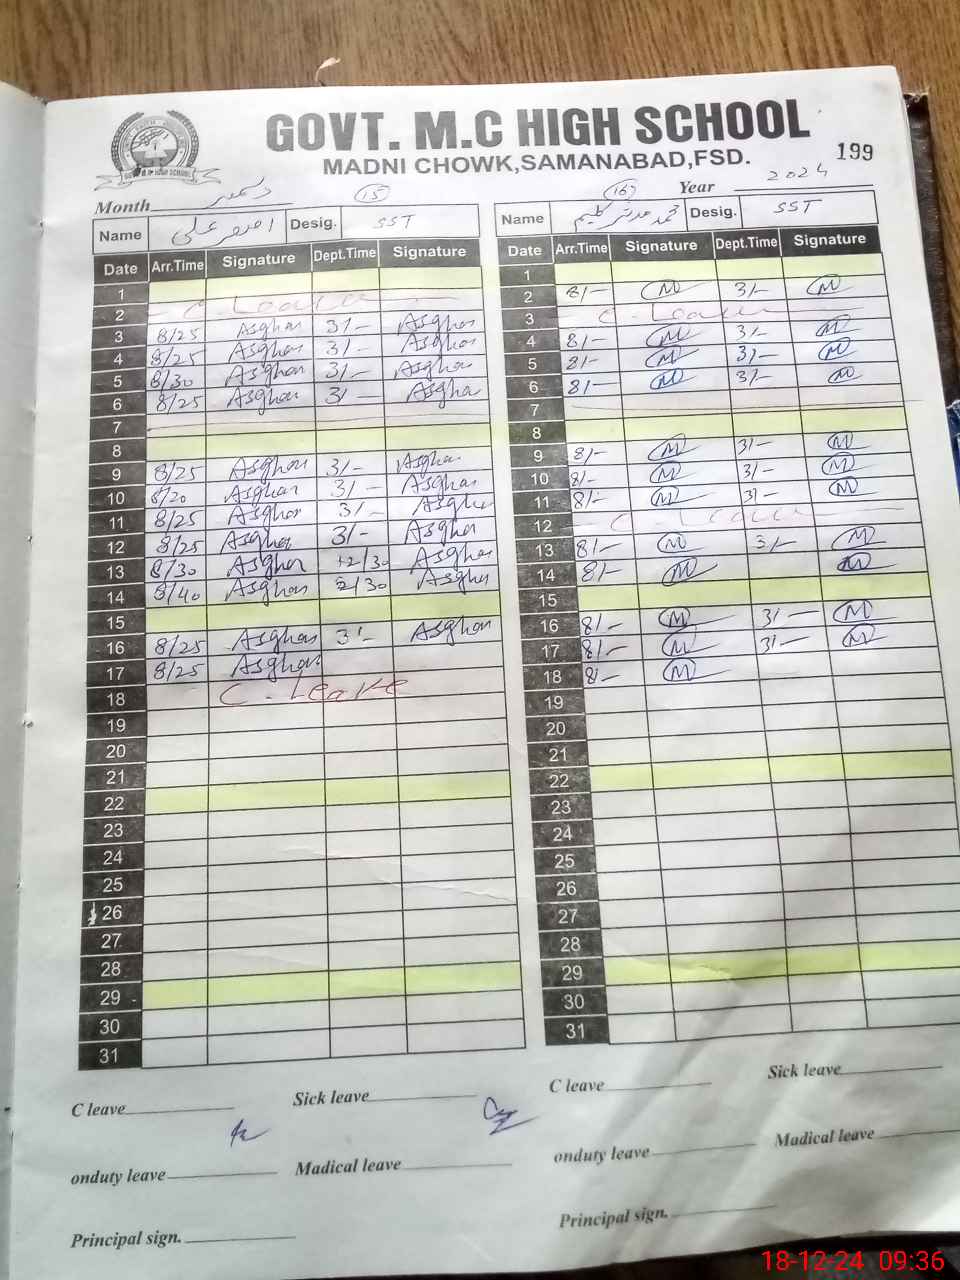 GOVT. M.C HIGH SCHOOL
MADNI CHOWK,SAMANABAD,FSD.
199
Month دسمبر 15 16 Year 2024
Name اصغر علی Desig. SST
Name محمد مدثر کلیم Desig. SST
Date Arr.Time Signature Dept.Time Signature
1
2 C-Leave
3 8/25 Asghar 3/- Asghar
4 8/25 Asghar 3/- Asghar
5 8/30 Asghar 3/- Asghar
6 8/25 Asghar 3/- Asghar
7
8
9 8/25 Asghar 3/- Asghar
10 8/20 Asghar 3/- Asghar
11 8/25 Asghar 3/- Asghar
12 8/25 Asghar 3/- Asghar
13 8/30 Asghar 12/30 Asghar
14 8/40 Asghar 2/30 Asghar
15
16 8/25 Asghar 3/- Asghar
17 8/25 Asghar
18 C-Leave
19
20
21
22
23
24
25
26
27
28
29
30
31
Date Arr.Time Signature Dept.Time Signature
1
2 8/- M 3/- M
3 C-Leave
4 8/- M 3/- M
5 8/- M 3/- M
6 8/- M 3/- M
7
8
9 8/- M 3/- M
10 8/- M 3/- M
11 8/- M 3/- M
12 C-Leave
13 8/- M 3/- M
14 8/- M M
15
16 8/- M 3/- M
17 8/- M 3/- M
18 8/- M
19
20
21
22
23
24
25
26
27
28
29
30
31
C leave Sick leave
onduty leave Madical leave
Principal sign.
C leave Sick leave
onduty leave Madical leave
Principal sign.
18-12-24 09:36